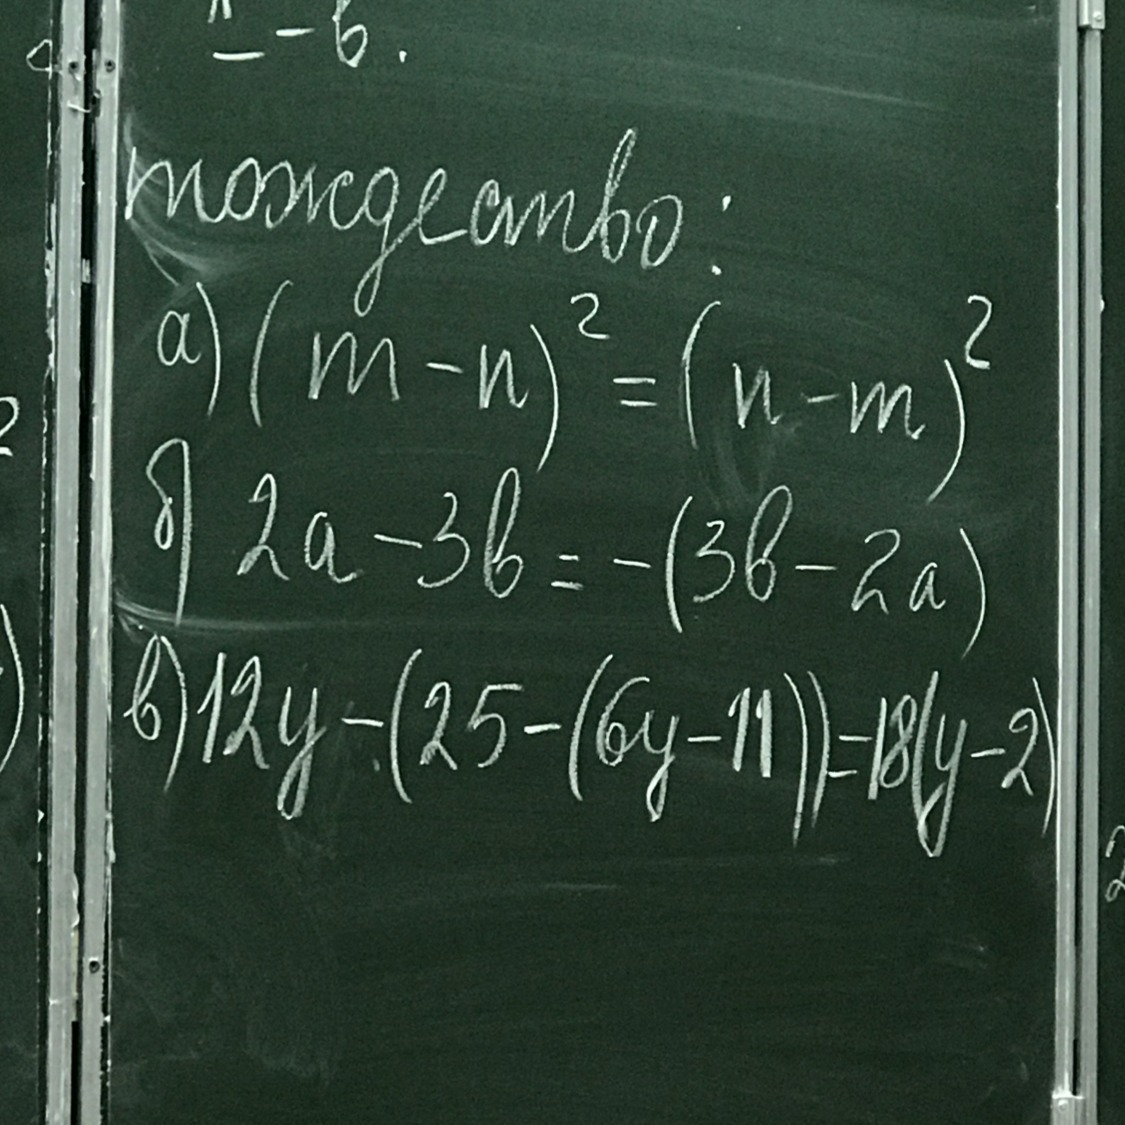 - b.
тождество:
а) (m - n)² = (n - m)²
б) 2a - 3b = -(3b - 2a)
в) 12y - (25 - (6y - 11)) = 18(y - 2)
2
2